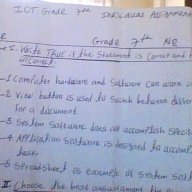 ICT Grade 7th Individual Assignment
Grade 7th No
I. Write TRUE if the statement is correct and
incorrect
1 Computer hardware and Software can work
2 View button is used to switch between
for a document.
3 System Software does not accomplish speci
4 Application Software is designed to accompl
task.
5 Spreadsheet is example of System sof
II Choose the best answer among the